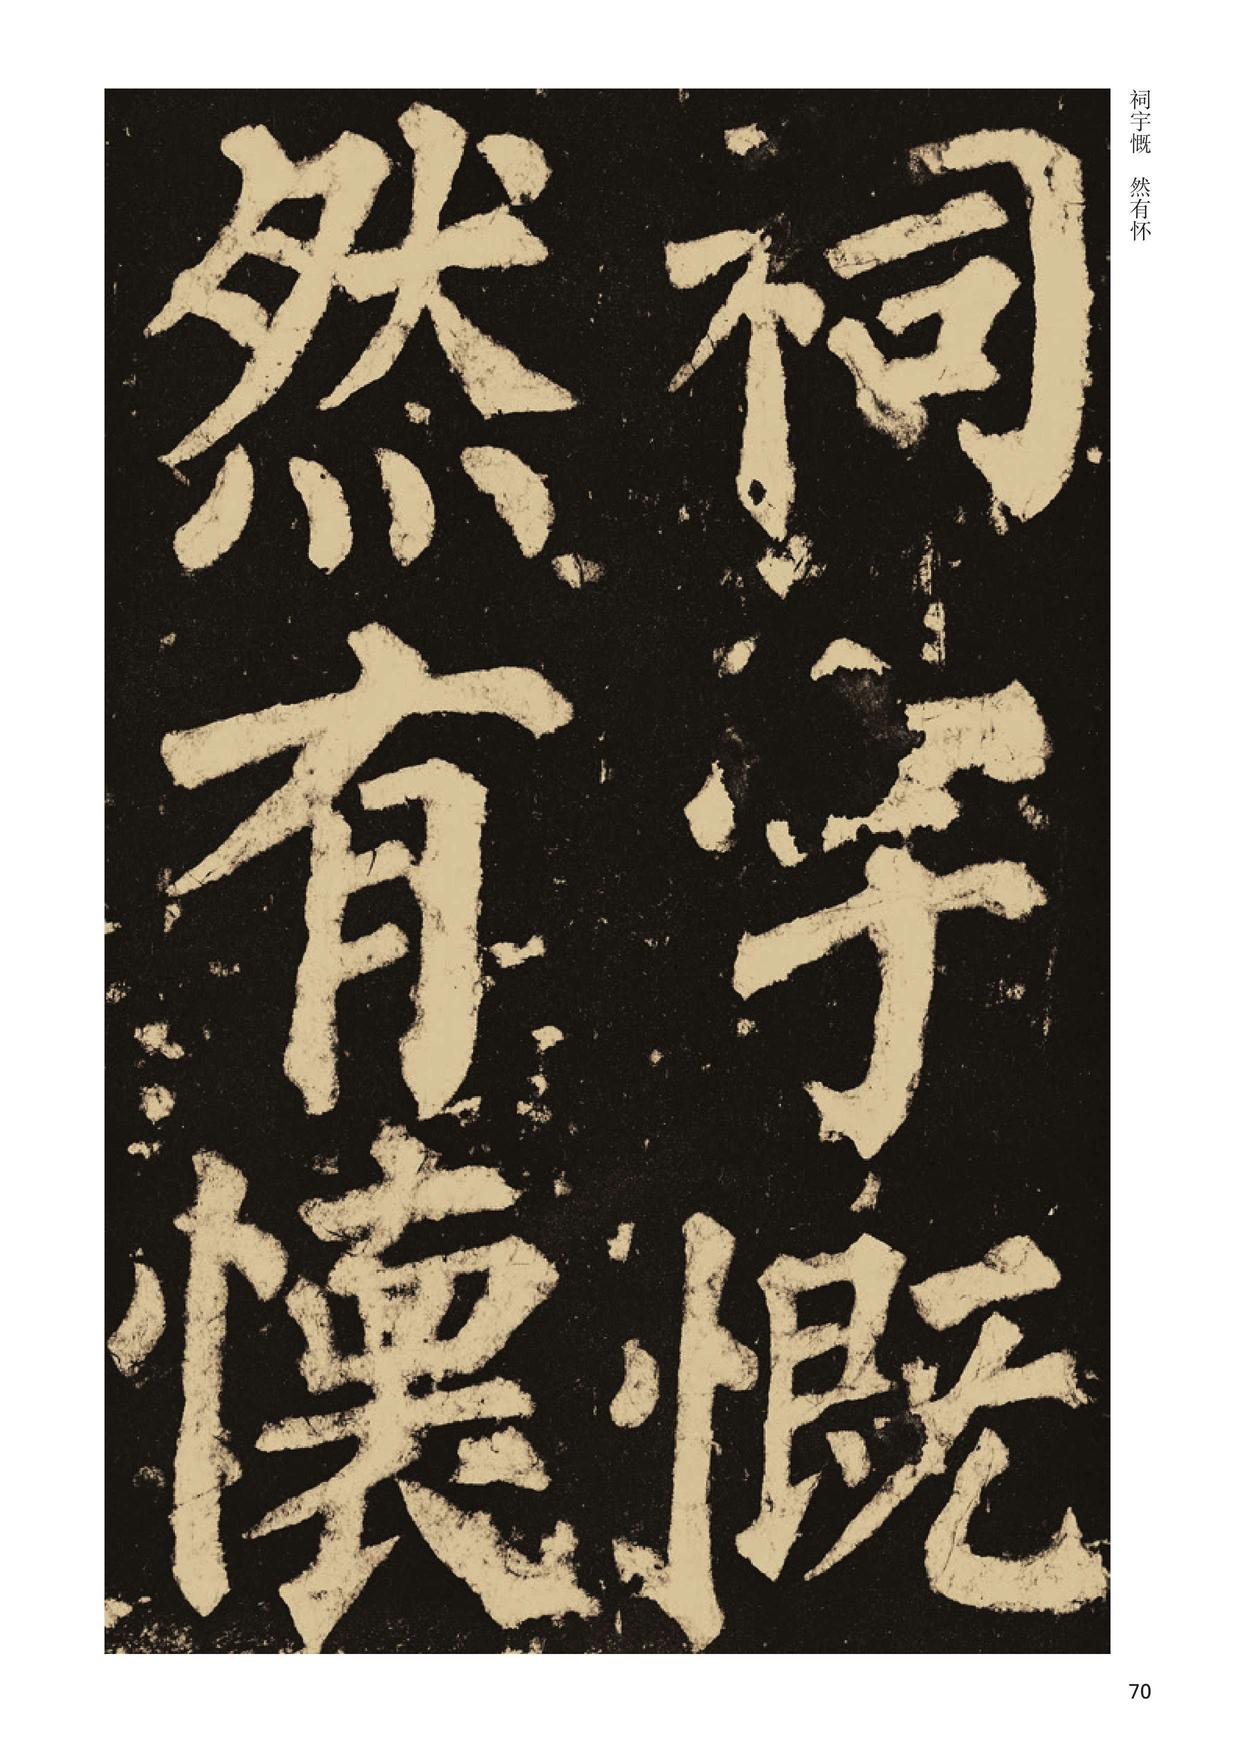 祠宇慨
然有懷
祠宇慨　然有怀
70